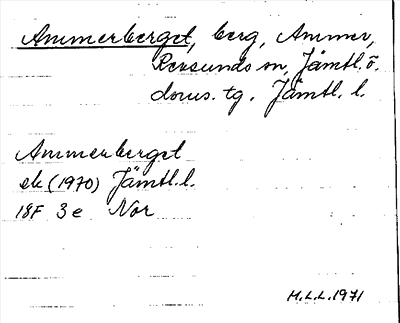 Ammerberget, berg, Ammer,
Revsunds sn, Jämtl. ö.
doms. tg. Jämtl. l.
Ammerberget
ek (1970) Jämtl. l.
18F 3e Nor
M.L.L. 1971